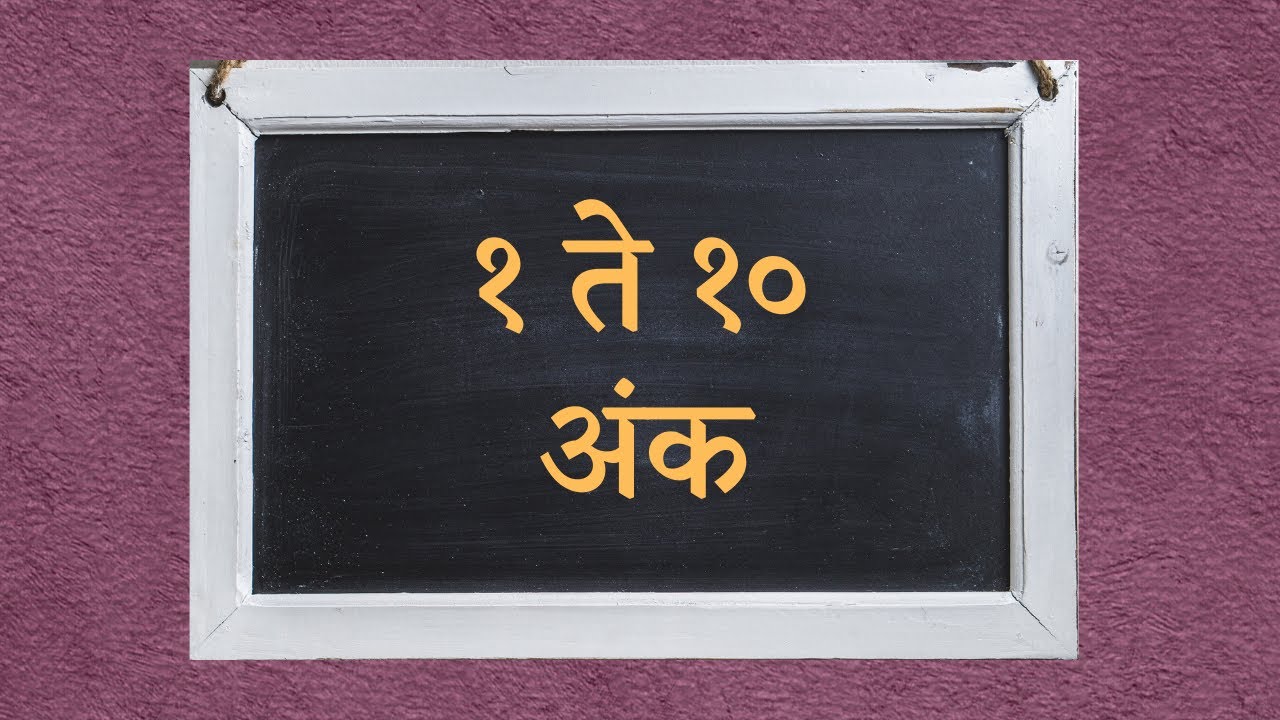 १ ते १०
अंक